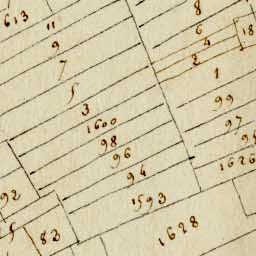 613
11
9
7
5
3
1600
98
96
94
1593
8
6
4
2
1
99
97
95
1626
18
92
5
83
1628